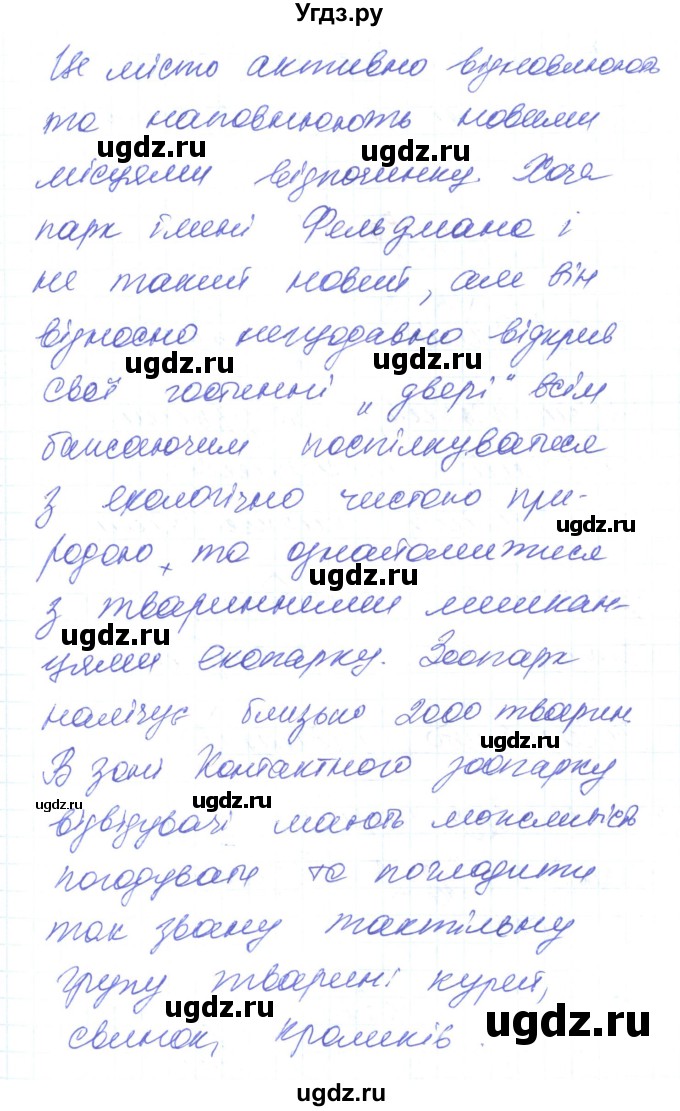 Угдз.ру
Це місто активно відновлюють
та наповнюють новими
ugdz.ru ugdz.ru
місцями відпочинку. Хоча
парк імені Фельдмана і
не такий новий, але він
відносно нещодавно відкрив
ugdz.ru ugdz.ru
свої гостинні „двері“ всім
бажаючим поспілкуватися
з екологічно чистою при-
ugdz.ru
родою, та ознайомитися
ugdz.ru
з тваринними мешкан-
ugdz.ru
цями екопарку. Зоопарк
налічує близько 2000 тварин
ugdz.ru
В зоні Контактного зоопарку
ugdz.ru ugdz.ru
відвідувачі мають можливість
погодувати та погладити
так звану тактільну
групу тварин: курей,
свинок, кроликів.
ugdz.ru
ugdz.ru